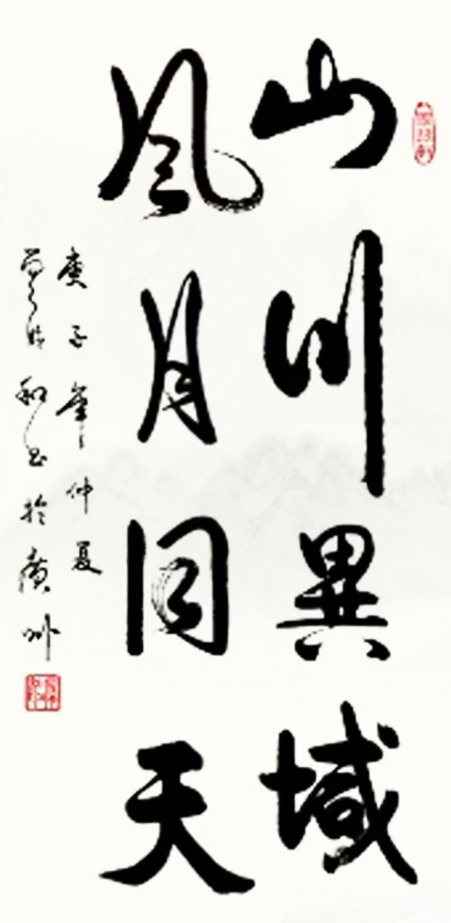 山川異域
風月同天
庚子年仲夏
和书於廣州